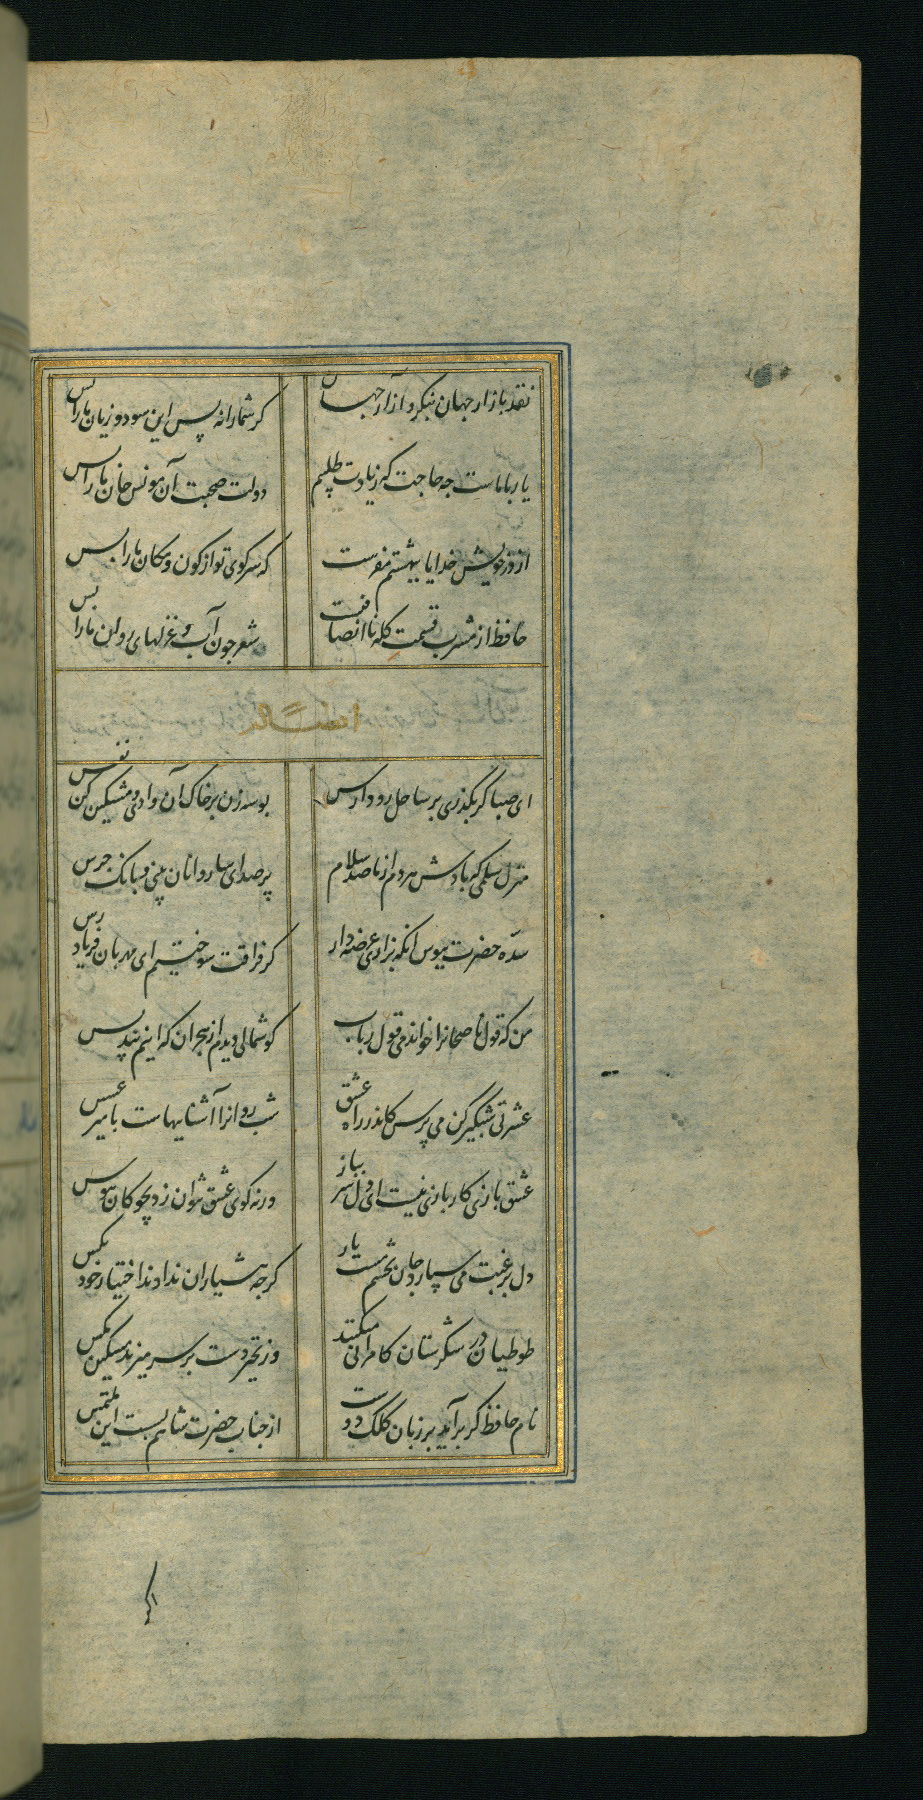 نقد بازار جهان بنگر و آزار جهان
کر شمارا نه بس این سود و زیان ما را بس
یار با ماست چه حاجت که زیادت طلبیم
دولت صحبت آن مونس جان ما را بس
از در خویش خدایا ببهشتم مفرست
که سر کوی تو از کون و مکان ما را بس
حافظ از مشرب قسمت کله ناانصافیست
شعر چون آب و غزلهای روان ما را بس
ایضا له
ای صبا کر بکذری بر ساحل رود ارس
بوسه زن بر خاک آن وادی و مشکین کن نفس
منزل سلمی که بادش هر دم از ما صد سلام
پر صدای ساروانان بینی و بانک جرس
سده حضرت ببوس آنکه بزاری عرضه دار
کز فراقت سوختیم ای مهربان فریاد رس
من که قول ناصحانرا خواندمی قول رباب
کوشمالی دیدم از هجران که اینم پند بس
عشرتی شبکیر کن می پرس کاندر راه عشق
شب روانرا آشناییهاست با میر عسس
عشق بازی کار بازی نیست ای دل سر بباز
ورنه کوی عشق نتوان زد بچوکان هوس
دل برغبت می سپارد جان بچشم مست یار
کر چه هشیاران ندادند اختیار خود بکس
طوطیان در شکرستان کامرانی میکنند
وز تحیر دست بر سر میزند مسکین مکس
نام حافظ کر برآید بر زبان کلک دوست
از جناب حضرت شاهم بس است این ملتمس